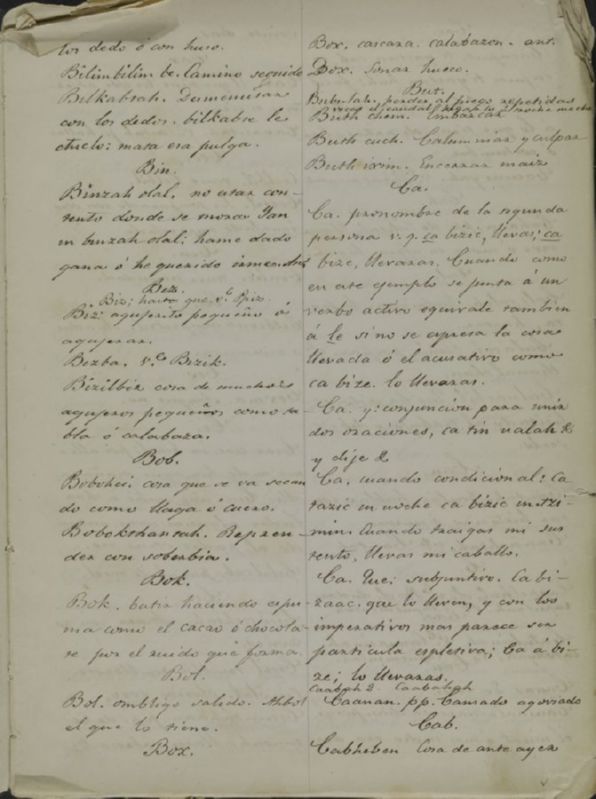 los dedo ó con huso.
Bilimbilim be. Camino seguido
Bilkabtah. Desmenusar
con los dedos. bilkabte le
chielo: mata esa pulga.
Bin.
Binzah olal. no estar con-
tento donde se mora Tan
in binzah olal: hame dado
gana ó he querido irme
Biz.
Biz; hasta que, v.e Biz.
Biz: agujerito pequeño ó
agujerar.
Bizba. v.e Bizik.
Bizilbiz cosa de muchos
agujeros pequeños como ta-
bla ó calabaza.
Bob.
Bobohci. cosa que se va secan
do como llaga ó cuero.
Bobokthantah. Repren-
der con soberbia.
Bok.
Bok. batir haciendo espu-
ma como el cacao ó chocola-
te por el ruido que forma.
Bol.
Bol. ombligo salido. Ahbol
el que lo tiene.
Box.
Box. cascara. calabazon. ant.
Box. Sonar hueco.
But.
perder al juego repetidas
veces el caudal
Buth chem. Embarcar
Buth cuch. Calumniar y culpar
Buth ixim. Encerrar maiz
Ca.
Ca. pronombre de la segunda
persona v. g. ca bizic, llevas; ca
bize, llevaras. Cuando como
en este ejemplo se junta á un
verbo activo equivale tambien
á le si no se expresa la cosa
llevada ó el acusativo como
ca bize. lo llevaras.
Ca. y: conjuncion para unir
dos oraciones, ca tin ualah &
y dije &
Ca. cuando condicional: Ca
tazic in uoche ca bizic in tzi-
min. Cuando traigas mi sus
tento, llevas mi caballo.
Ca. Que; subjuntivo. Ca bi-
zaac. que lo lleven, y con los
imperativos mas parece ser
particula espletiva; Ca á bi-
ze; lo llevaras.
Caanan. pp. Cansado agoviado
Cab.
Cabheben Cosa de ante ayer